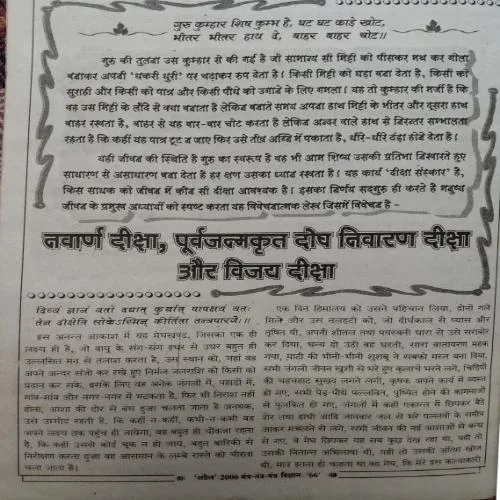 गुरु कुम्हार शिष कुम्भ है, घट घट काढ़े खोट,
भीतर भीतर हाथ दे, बाहर बाहर चोट।।
गुरु की तुलना उस कुम्हार से की गई है जो सामान्य सी मिट्टी को पीसकर मथ कर गोला
बनाकर अपनी 'चकरी धुरी' पर चढ़ाकर रूप देता है। किसी मिट्टी को घड़ा बना देता है, किसी को
सुराही और किसी को पात्र और किसी पौधे को उगाने के लिए गमला। यह तो कुम्हार की मर्जी है कि
वह उस मिट्टी के लौंदे से क्या बनाता है लेकिन बनाते समय अपना हाथ मिट्टी के भीतर और दूसरा हाथ
बाहर रखता है, बाहर से वह बार-बार चोट करता है लेकिन अन्दर वाले हाथ से निरन्तर सम्भालता
रहता है कि कहीं यह पात्र टूट न जाए फिर उसे तीव्र अग्नि में पकाता है, धीरे-धीरे ठंढ़ा होने देता है।
यही जीवन की स्थिति है गुरु का स्वरूप है वह भी आम शिष्य उसकी प्रतिभा निखारते हुए
साधारण से असाधारण बना देता है हर क्षण उसका ध्यान रखता है। यह कार्य 'दीक्षा संस्कार' है,
किस साधक को जीवन में कौन सी दीक्षा आवश्यक है। इसका निर्णय सद्गुरु ही करते है मनुष्य
जीवन के प्रमुख अध्यायों को स्पष्ट करता यह विवेचनात्मक लेख जिसमें विवेचन है -
नवार्ण दीक्षा, पूर्वजन्मकृत दोष निवारण दीक्षा
और विजय दीक्षा
दिव्यं ज्ञानं यतो दद्यात् कुर्यात् पापक्षयं यतः
तेन दीक्षेति लोकेऽस्मिन् कीर्तिता तन्त्रपारगैः।।
इस अनन्त आकाश में वह मेघखण्ड, जिसका एक ही
लक्ष्य ही है, जो वायु के संग-संग इधर से उधर बहुत ही
उल्लसित मन से तलाश करता है, उस स्थान को, जहां वह
अपने अन्दर संजो कर रखे हुए निर्मल जलराशि को किसी को
प्रदान कर सके, इसके लिए वह अनेक जंगलों में, पहाड़ों में,
गांव-गांव और नगर-नगर में भटकता है, फिर भी निराश नहीं
होता, आशा की डोर से बंधा हुआ चलता जाता है अनथक,
उसे उम्मीद रहती है, कि कहीं-न-कहीं, कभी-न-कभी वह
अपने लक्ष्य तक पहुंच ही जायेगा, वह बहुत ही चौकन्ना रहता
है, कि कहीं उससे कोई चूक न हो जाय, बहुत बारिकी से
निरीक्षण करता हुआ वह आसमान के लम्बे रास्ते को चीरता
चला जाता है।
एक दिन हिमालय को उसने पहिचान लिया, दोनों गले
मिले और उस तलहटी को, जो दीर्घकाल से प्यास और
तृषित थी, अपनी शीतल तथा पयस्वनी धारा से उसे सराबोर
कर दिया, धन्य हो उठी वह धरती, सारा वातावरण महक
गया, माटी की भीनी-भीनी खुशबू ने सबको मस्त बना दिया,
सभी जंगली जीवन खुशी से भरे हुए कुलाचें भरने लगे, चिड़ियों
की चहचहाट सुखद लगने लगी, कृषक अपने कार्य में व्यस्त
हो गए, सभी पेड़-पौधे पल्लवित, पुष्पित होने की कामनाओं
से पुलकित हो गए, जंगलों में कहीं एकान्त में छिपकर बैठे
शेर तथा हाथी आदि जानवर जल से भरे पल्लवों के समीप
आकर मचलने से लगे, सभी जीवन की नई आशाओं से बन्ध
से गए, वे मेघ छिपकर यह सब कुछ देख रहा था, यही तो
उसकी नितान्त अभिलाषा थी, यही तो उसकी अंतिम खोज
थी, मात्र इतना ही चाहता था वह मेघ, कि मेरे इस कल्याणकारी
'अप्रैल' 2006 मंत्र-तंत्र-यंत्र विज्ञान '66'